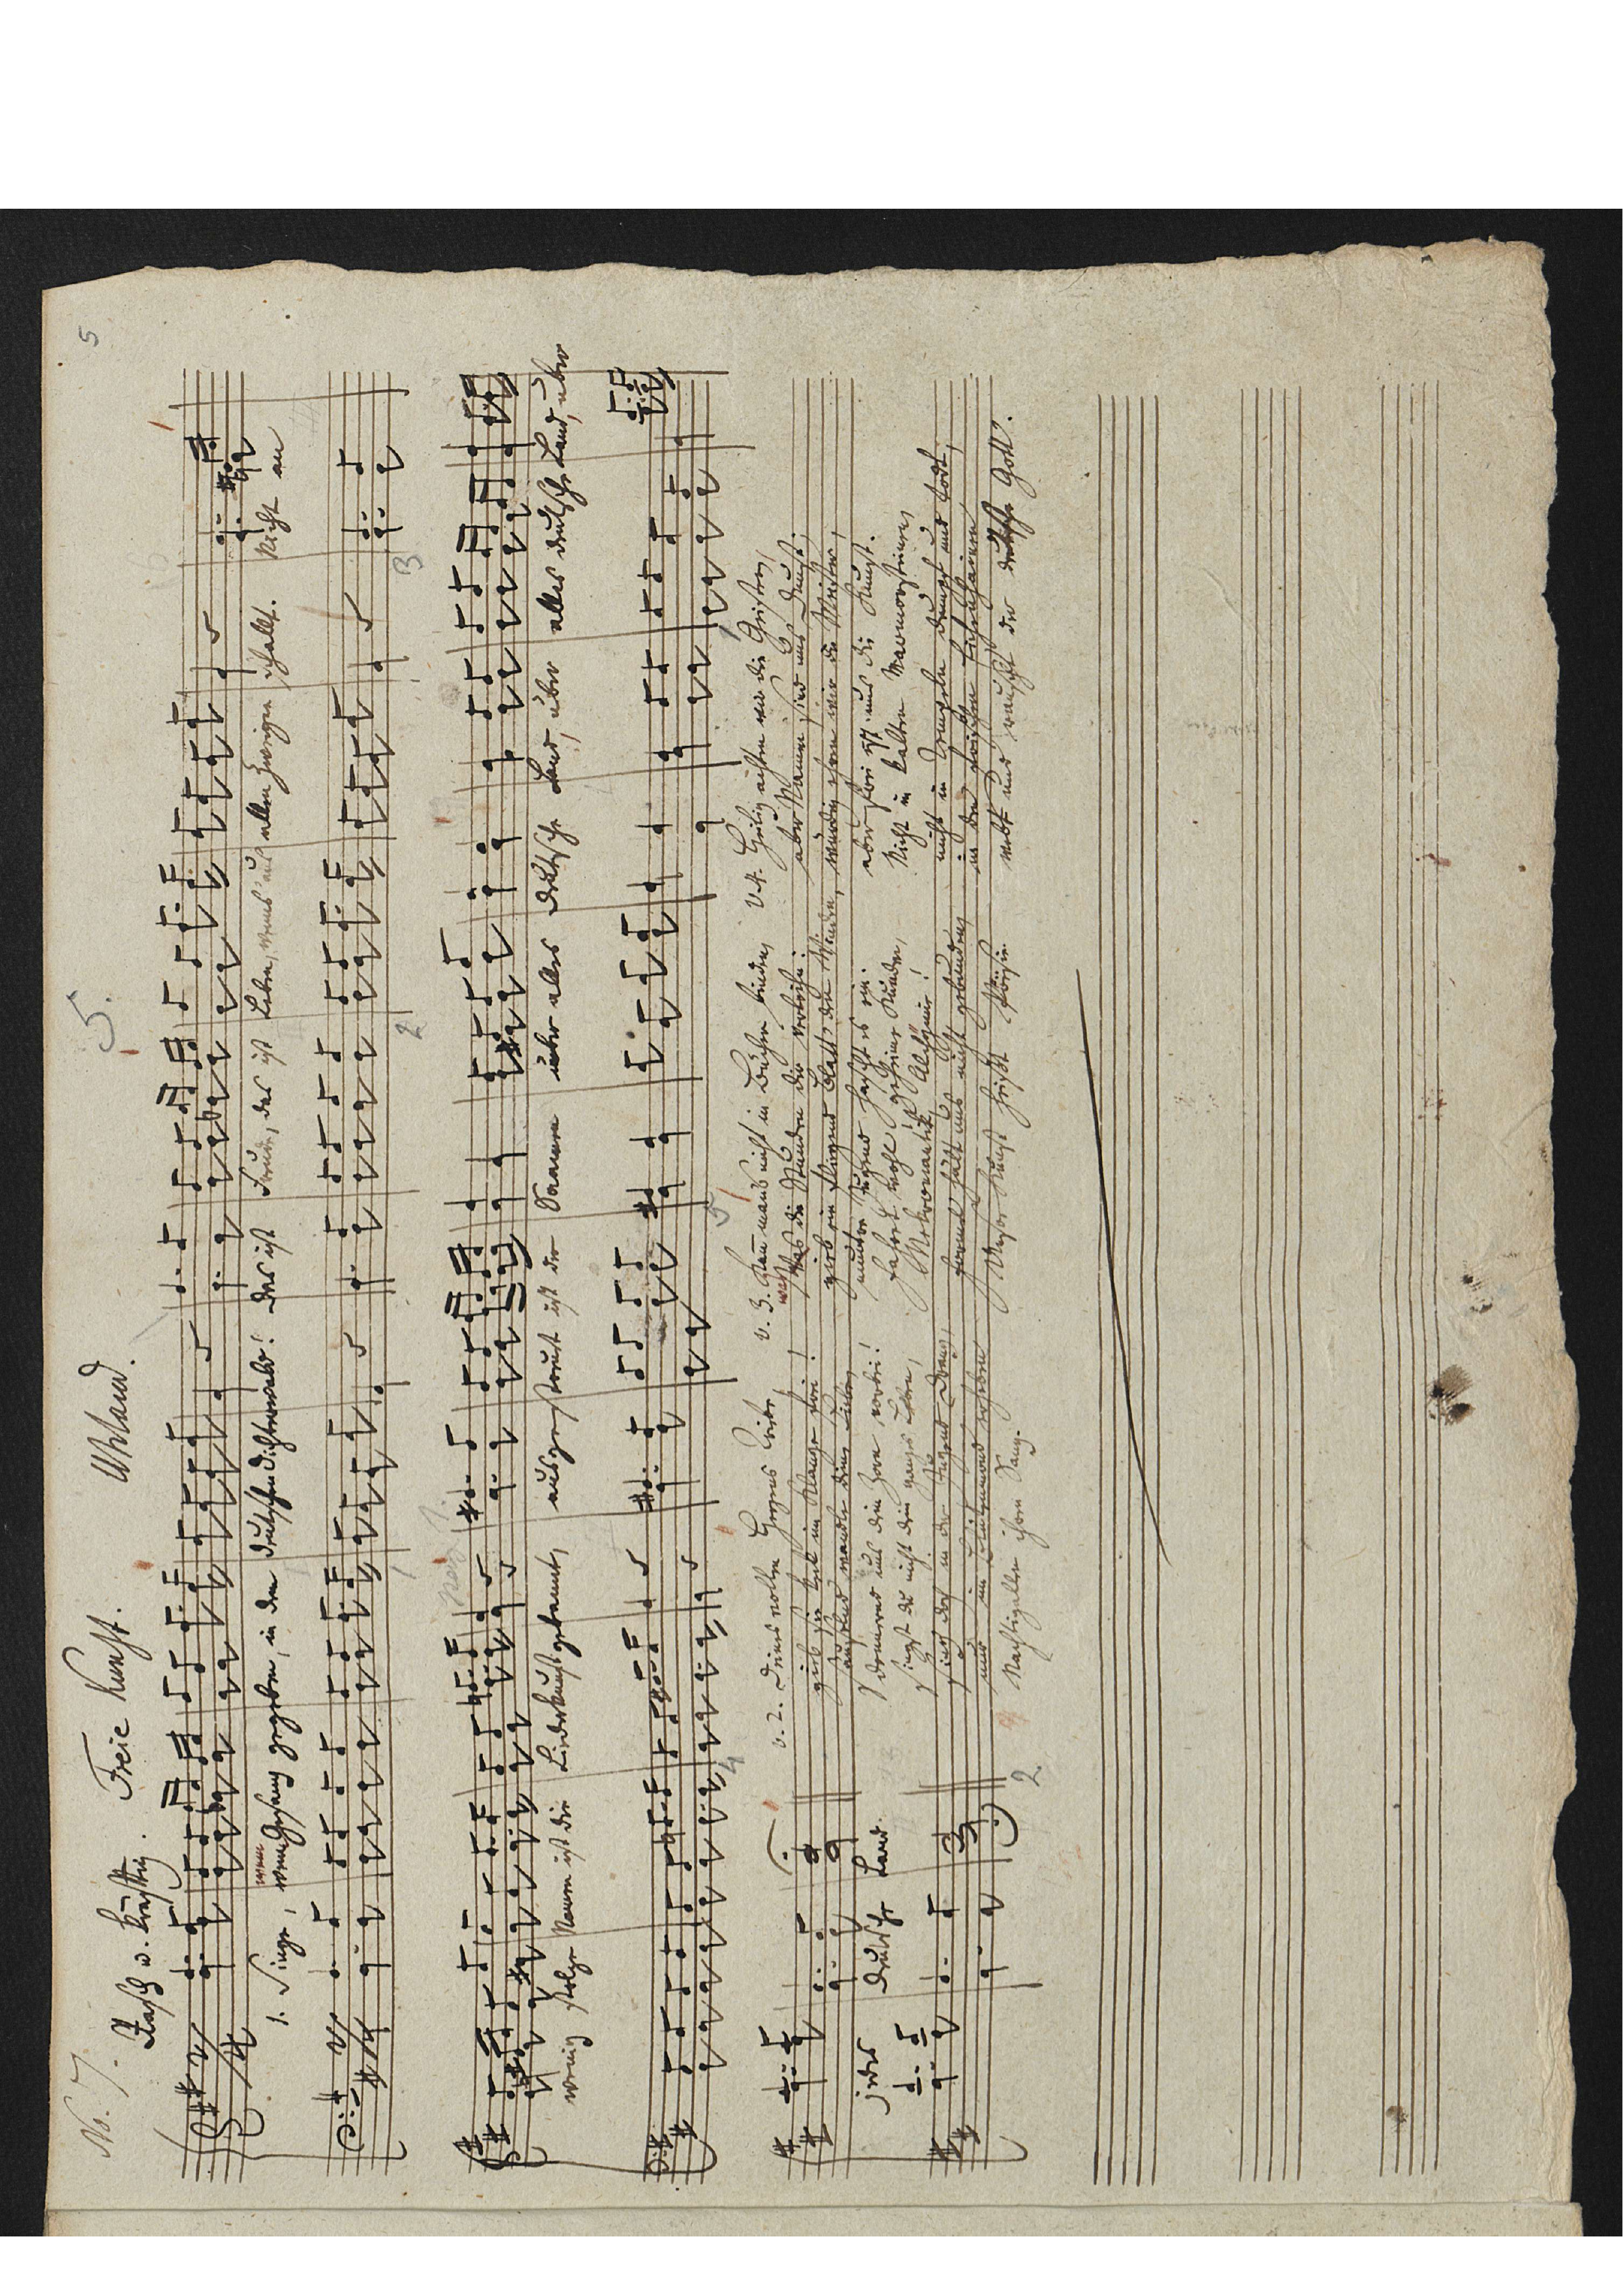 5
5.
No. 7. Freie Kunst. Uhland.
Rasch u. kräftig.
wem
1. Singe, wem Gesang gegeben, in dem deutschen Dichterwald! das ist Freude, das ist Leben, wenns aus allen Zweigen schallt. Nicht an
1 2 3
wenig stolze Namen ist die Liederkunst gebannt, ausgestreut ist der Saamen über alles deutsche Land, über alles deutsche Land, über
4 5
jedes deutsche Land.
2.
v. 2. Deines vollen Herzens Triebe,
gieb sie keck im Klange frei!
säuselnd wandle deine Liebe,
donnernd uns dein Zorn vorbei!
singst du nicht dein ganzes Leben,
sing doch in der Jugend Drang,
und im Blüthenmond
Nachtigallen ihren Sang.
v. 3. Kann mans nicht in Bücher binden,
was die Stunden dir verleihn:
gieb ein fliegend Blatt den Winden,
muntre Jugend hascht es ein.
Fahret wohl geheime Kunden,
Nekromantik, Alchymie!
Formel hält uns nicht gebunden,
Unsre Kunst heißt Poësie.
v. 4. Heilig achten wir die Geister,
aber Namen sind uns Dunst;
würdig ehren wir die Meister,
aber frei ist uns die Kunst.
Nicht in kalten Marmorsteinen,
nicht in Tempeln dumpf und todt,
in den frischen Eichenhainen
webt und rauscht der deutsche Gott.